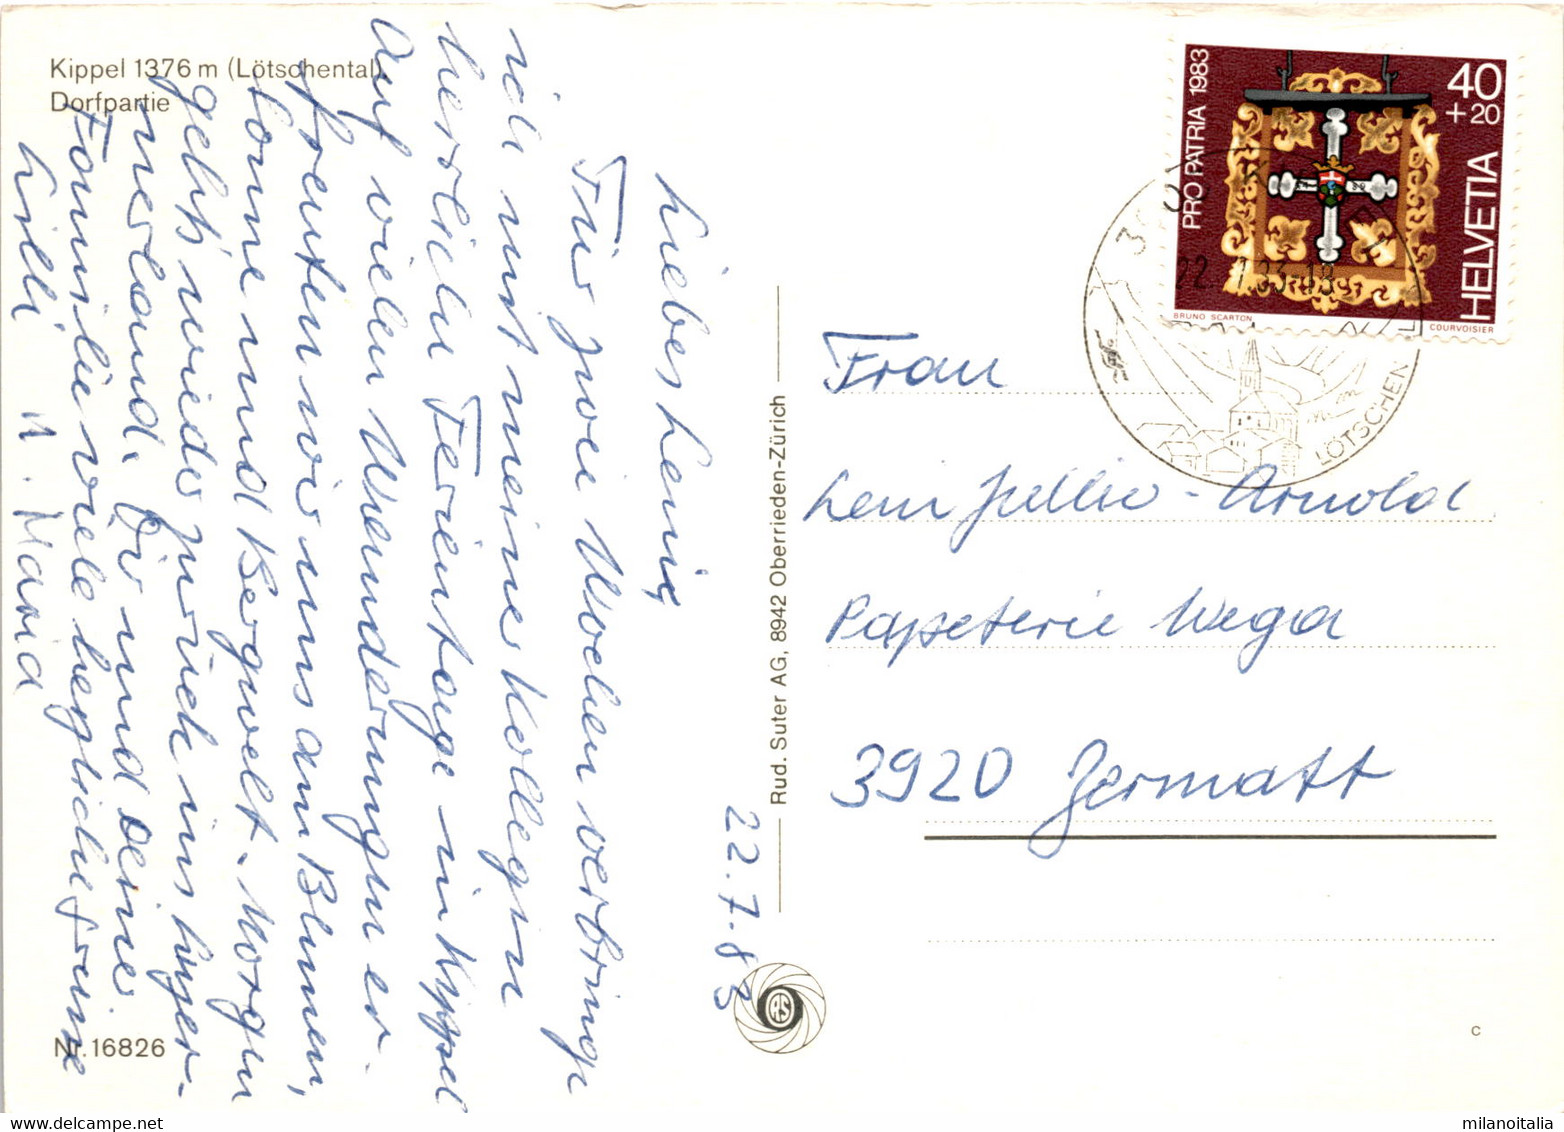 Kippel 1376 m (Lötschental)
Dorfpartie
22.7.83
Liebes Leni
Für zwei Wochen verbringe
ich mit meiner Kollegin
herrliche Ferientage in Kippel
Auf vielen Wanderungen er-
freuten wir uns am Blumen,
Sonne und Bergwelt. Morgen
geht's wieder zurück ins
nerland. Dir und deiner
Familie viele herzliche Grüsse
Lilli u. Maria
Nr. 16826
Rud. Suter AG, 8942 Oberrieden-Zürich
PRO PATRIA 1983
40
+20
HELVETIA
BRUNO SCARTON
COURVOISIER
22. 7.83-18
LÖTSCHEN
Frau
Leni Jullio-Arnold
Papeterie Wega
3920 Zermatt
c
milanoitalia